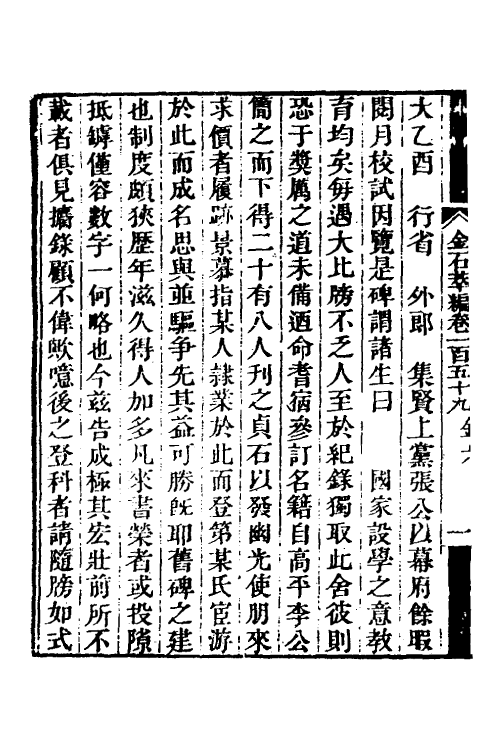 金石萃編卷一百五十九 金六 一
大乙酉 行省 外郎 集賢上黨張公以幕府餘暇
閱月校試因覽是碑謂諸生曰 國家設學之意教
育均矣每遇大比牓不乏人至於紀錄獨取此舍彼則
恐于奬厲之道未備迺命耆宿參訂名籍自高平李公
簡之而下得二十有八人刊之貞石以發幽光使朋來
求價者履跡景慕指某人隸業於此而登第某氏宦游
於此而成名思與並驅爭先其益可勝旣耶舊碑之建
也制度頗狹歷年滋久得人加多凡來書榮者或投隙
抵罅僅容數字一何略也今兹告成極其宏壯前所不
載者俱見攟錄顧不偉歟噫後之登科者請隨牓如式